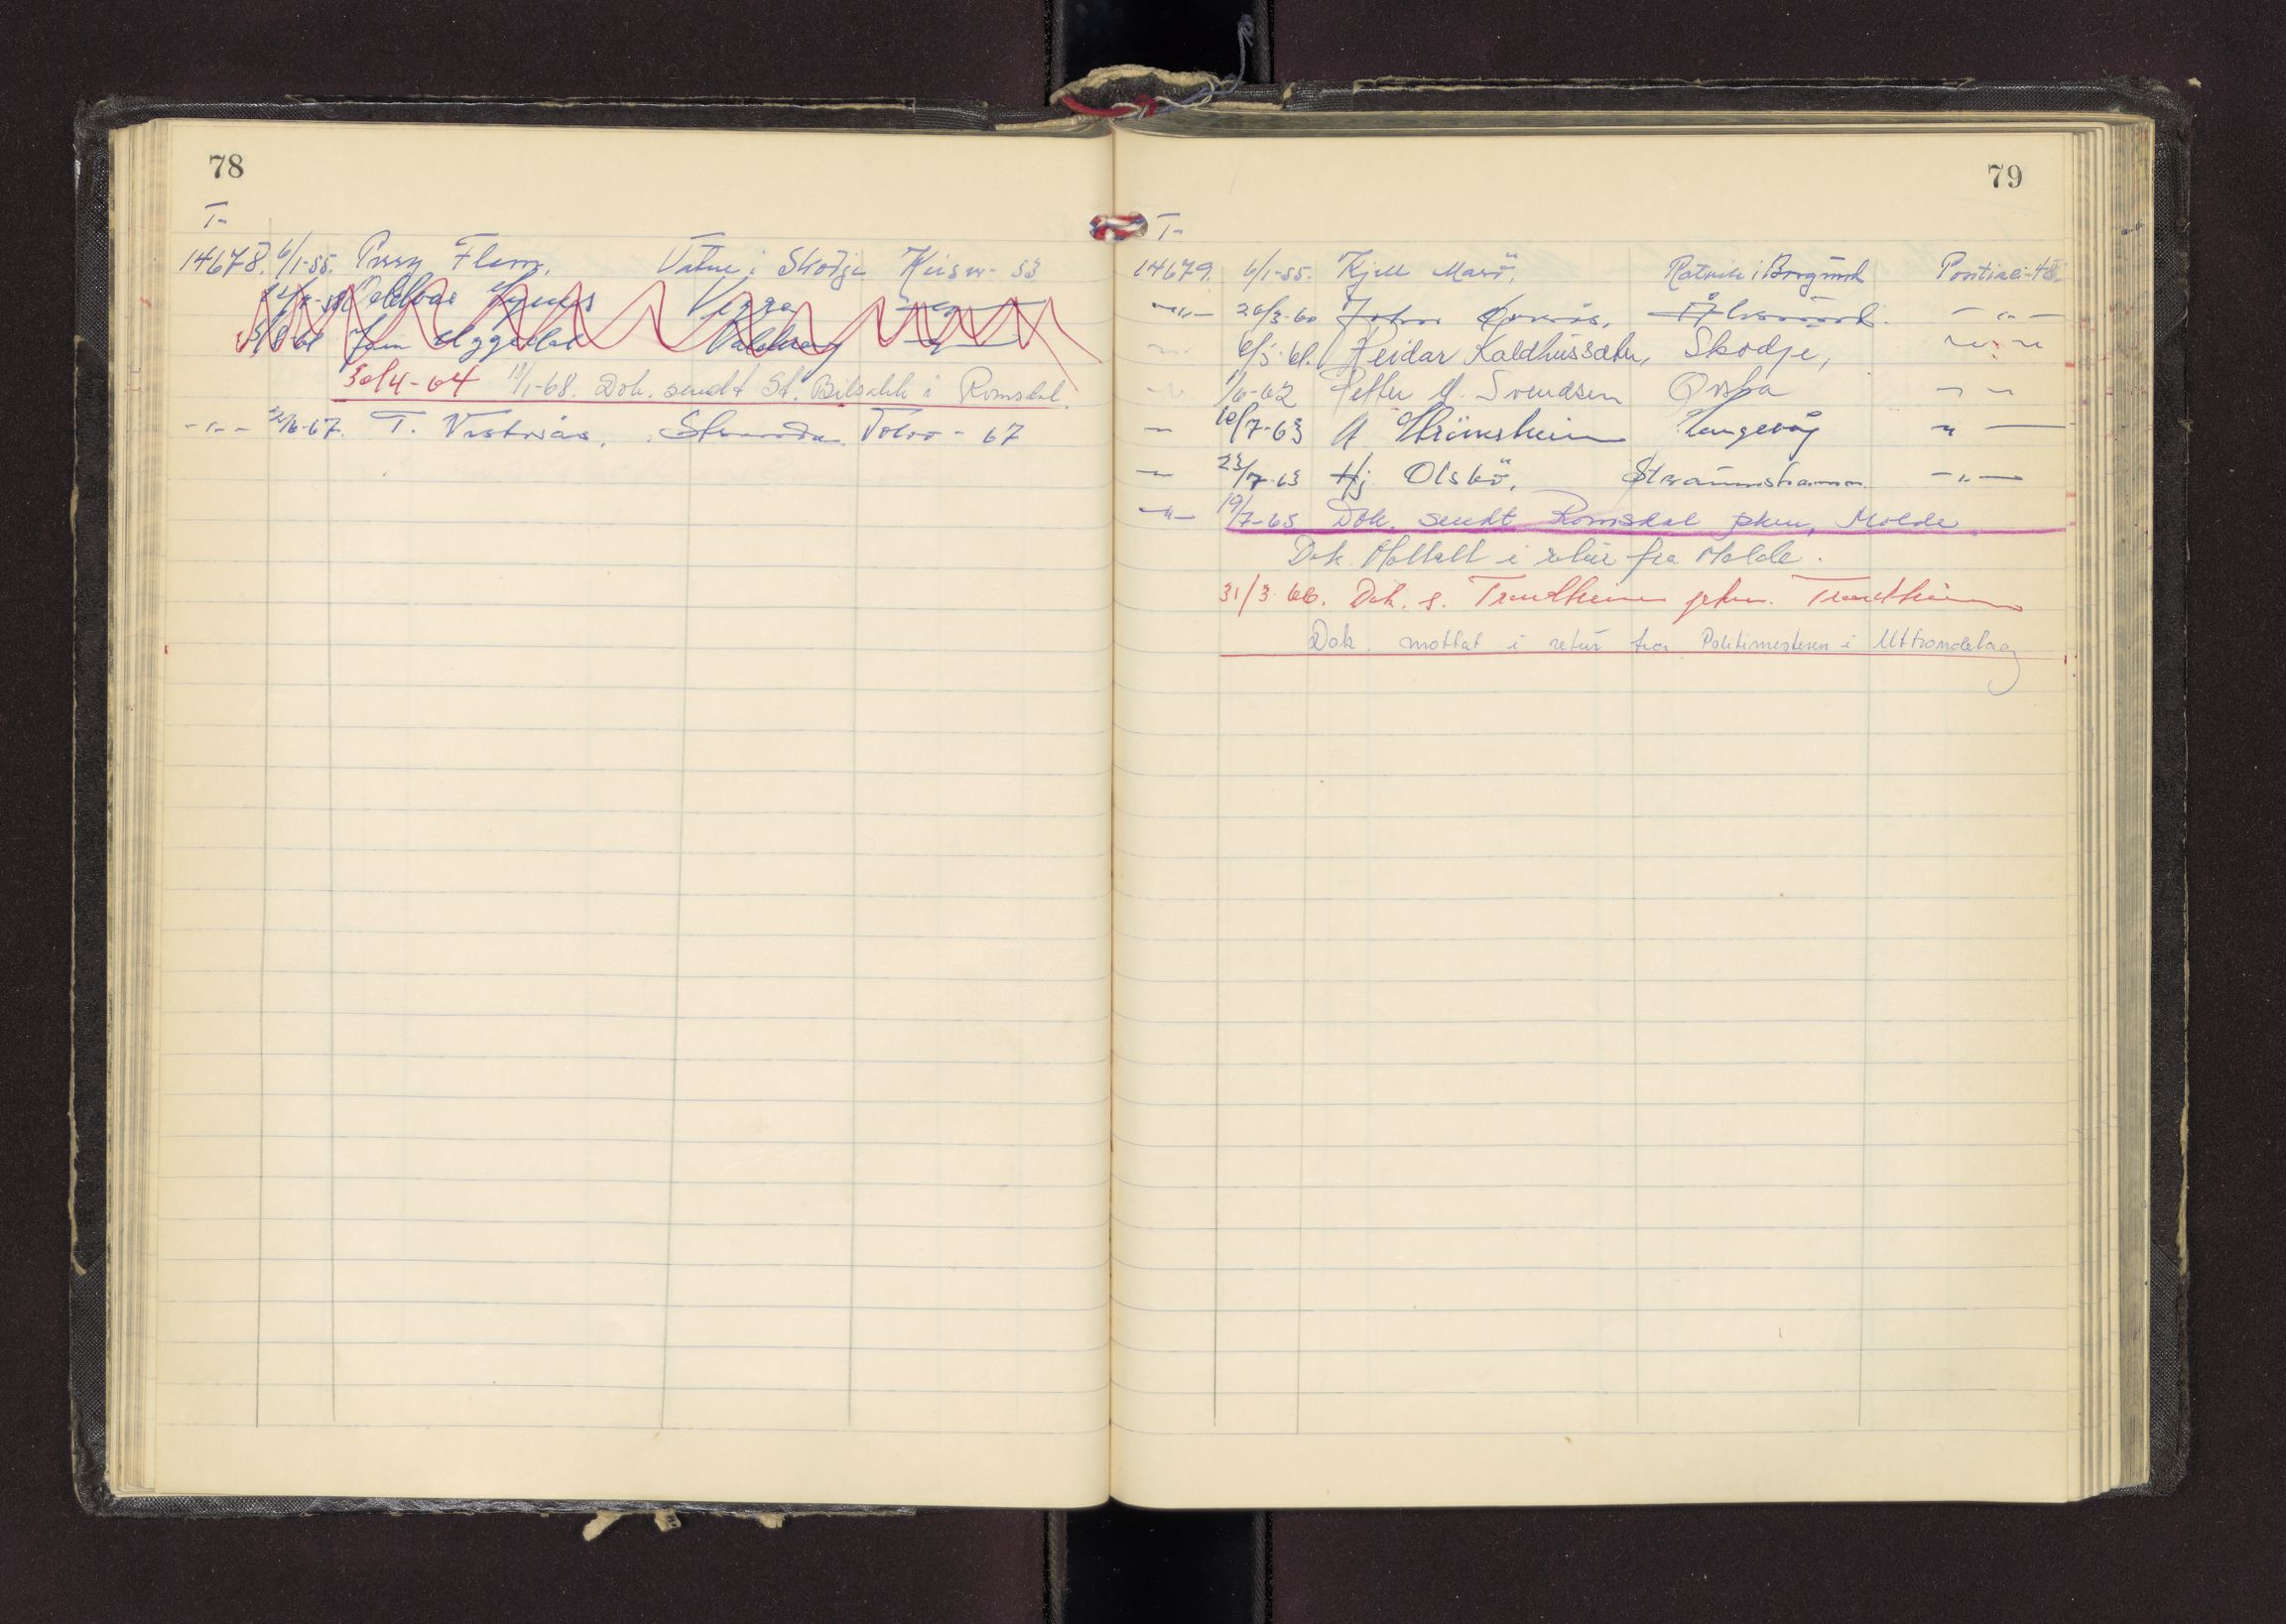 78
T-
14678. 6/1-55. Perry Flem, Vatne i Skodje Kaiser- 53
Vigra
Jan Uggedal
30/4-64 18/1-68. Dok. sendt St. Bilsakk i Romsdal.
-"- /6-67. T. Vestnäs, Volvo - 67
79
T-
14679. 6/1-55. Kjell Marö, Ratvik i Borgund Pontiac-48.
-"- 26/3-60 John Ålesund. -"-
6/5-61. Reidar Kaldhussæter, Skodje, -"-
1/6-62 Petter M. Svendsen Ørsta - -
- 10/7-63 A Strömsheim Langevåg " -
- 23/7-63 Hj. Olsbö, Straumshamn -"-
-"- 19/7-65 Dok. sendt Romsdal pkm, Molde.
Dok. Mottatt i retur fra Molde.
31/3-66. Dok. s. Trondheim pkm. Trondheim
Dok. mottat i retur fra Politimesteren i Uttrøndelag